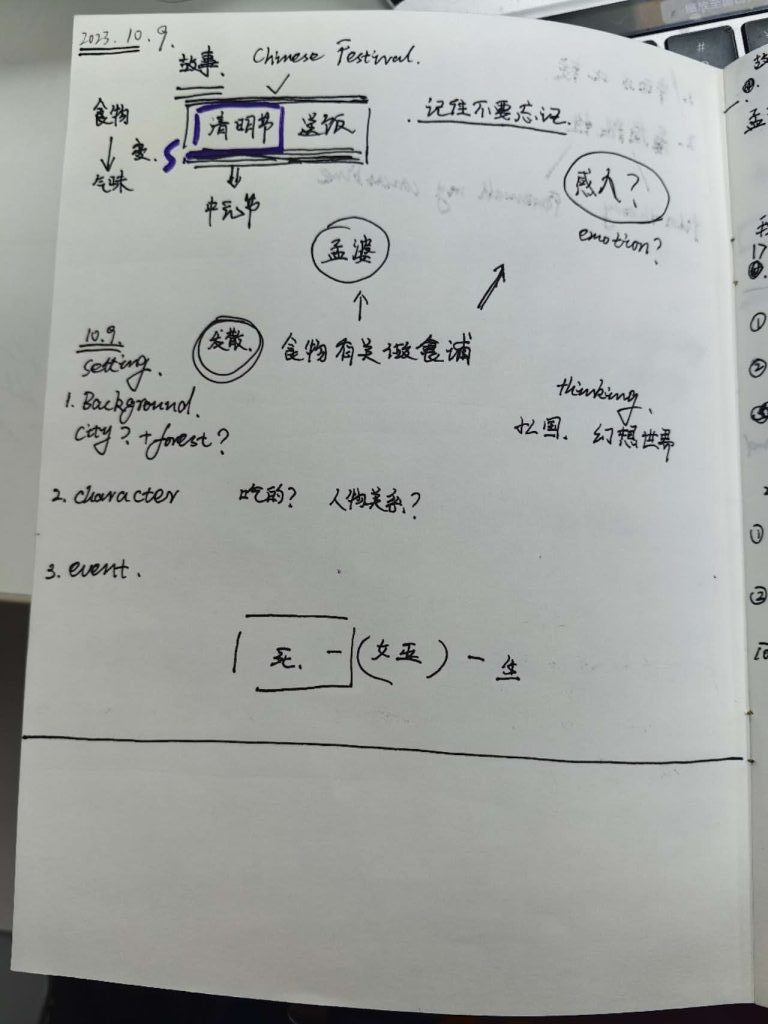 2023.10.9.
故事. Chinese Festival.
食物 清明节 送饭 记住不要忘记.
变.
气味
中元节 感人?
emotion?
孟婆
10.9. 发散. 食物有关做食谱
setting.
1. Background. thinking.
city? + forest? 幻想世界
2. character 吃的? 人物关系?
3. event.
死. - (女巫) - 生